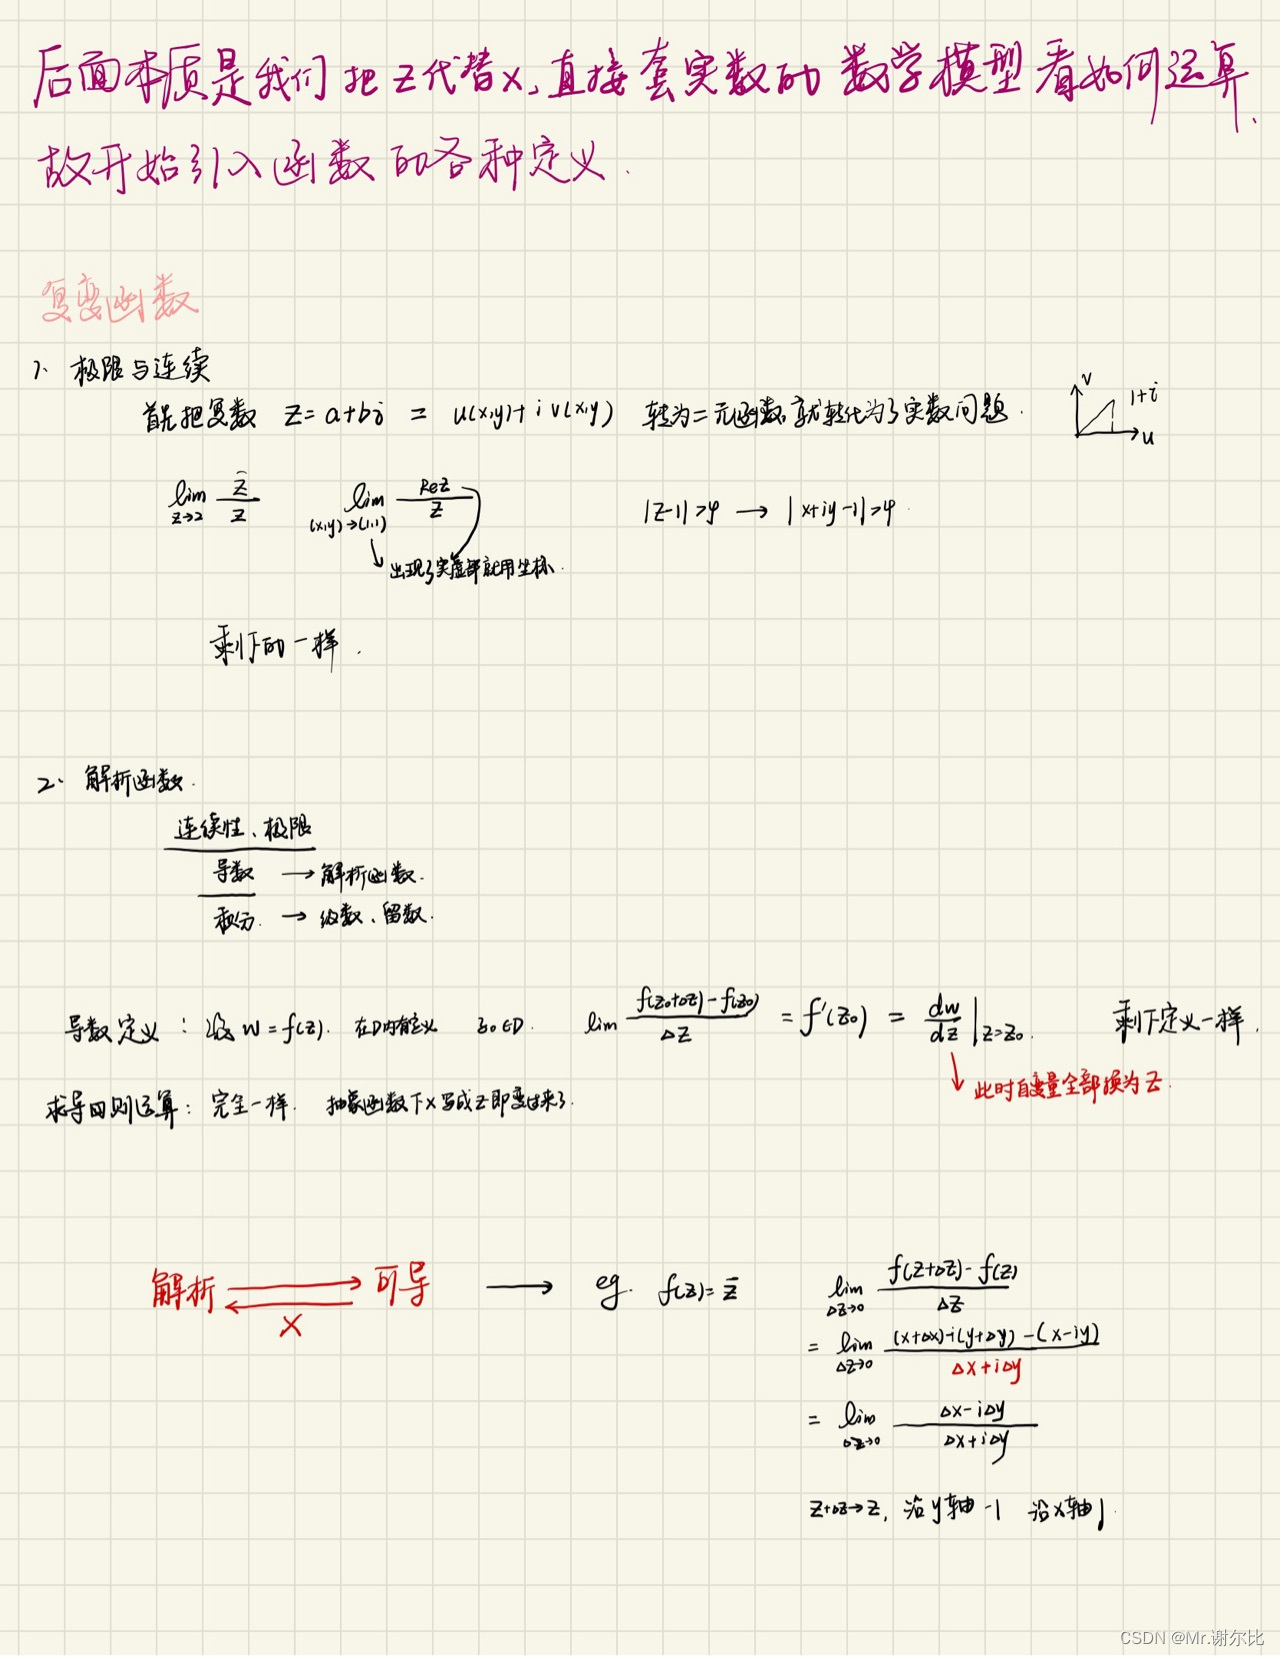 后面本质是我们把z代替x,直接套实数的数学模型看如何运算.
故开始引入函数的各种定义.
复变函数
1、极限与连续
首先把复数 z=a+bi = u(x,y)+iv(x,y) 转为二元函数,就转化为了实数问题.
v
1+i
u
lim z→2 z̄/z
lim (x,y)→(1,1) Rez/z
|z-1|>4 → |x+iy-1|>4.
出现了实虚部就用坐标.
剩下的一样.
2、解析函数.
连续性、极限
导数 → 解析函数.
积分. → 级数、留数.
导数定义: 设 w=f(z). 在D内有定义 z₀∈D. lim f(z₀+Δz)-f(z₀)/Δz = f'(z₀) = dw/dz |z=z₀. 剩下定义一样.
此时自变量全部换为z.
求导四则运算: 完全一样. 抽象函数下x写成z即变过来了.
解析 ⇄ 可导 → eg. f(z)=z̄
X
lim Δz→0 f(z+Δz)-f(z)/Δz
= lim Δz→0 (x+Δx)-i(y+Δy)-(x-iy)/Δx+iΔy
= lim Δz→0 Δx-iΔy/Δx+iΔy
z+Δz→z, 沿y轴-1 沿x轴1.
CSDN @Mr.谢尔比